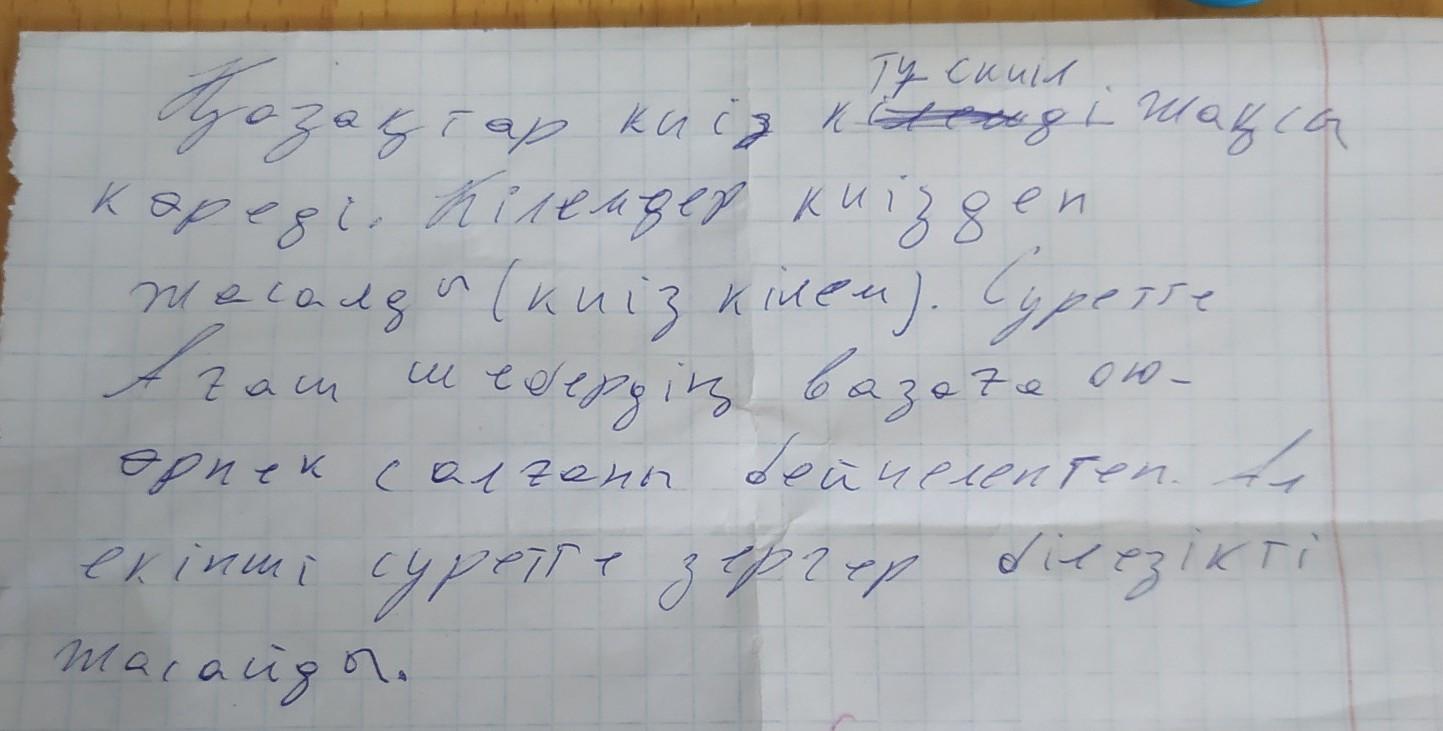 ту скиіл
Қазақтар киіз кілемді жақсы
көреді. Кілемдер киізден
жасалды (киіз кілем). Суретте
Ағаш шебердің вазаға ою-
өрнек салғаны бейнелентен. Ал
екінші суретте зергер білезікті
жасайды.